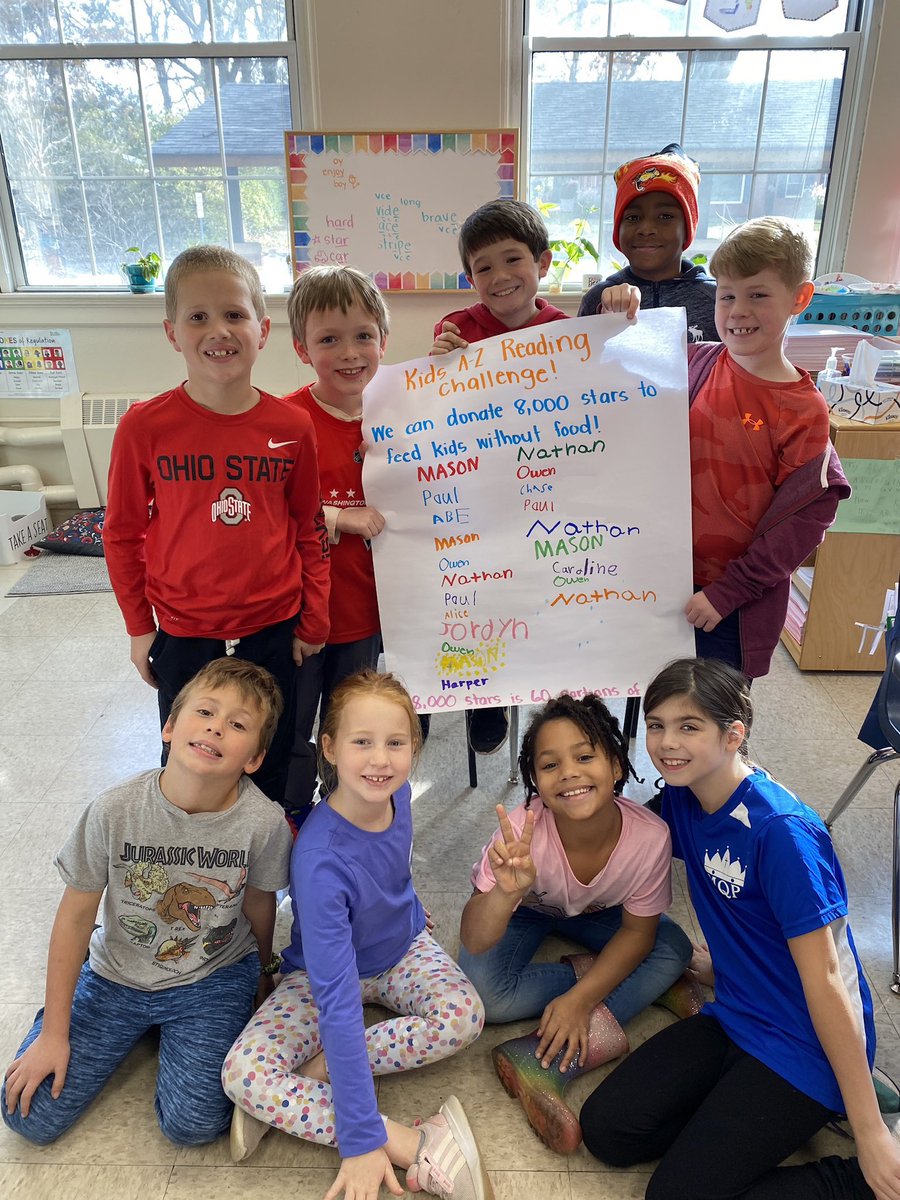 oy
enjoy
boy
hard
star
car
vce long
vide
ace
stripe
vce
brave
vce
ZONES of Regulation
TAKE A SEAT
Kids A-Z Reading
Challenge!
We can donate 8,000 stars to
feed kids without food!
MASON
Paul
ABE
MASON
Owen
Nathan
Paul
Alice
Jordyn
Owen
MASON
Harper
Nathan
Owen
Chase
Paul
Nathan
MASON
Caroline
Owen
Nathan
8,000 stars is 60 portions of
OHIO STATE
OHIO STATE
WASHINGTON
JURASSIC WORLD
TRICERATOPS
T. REX
MQP